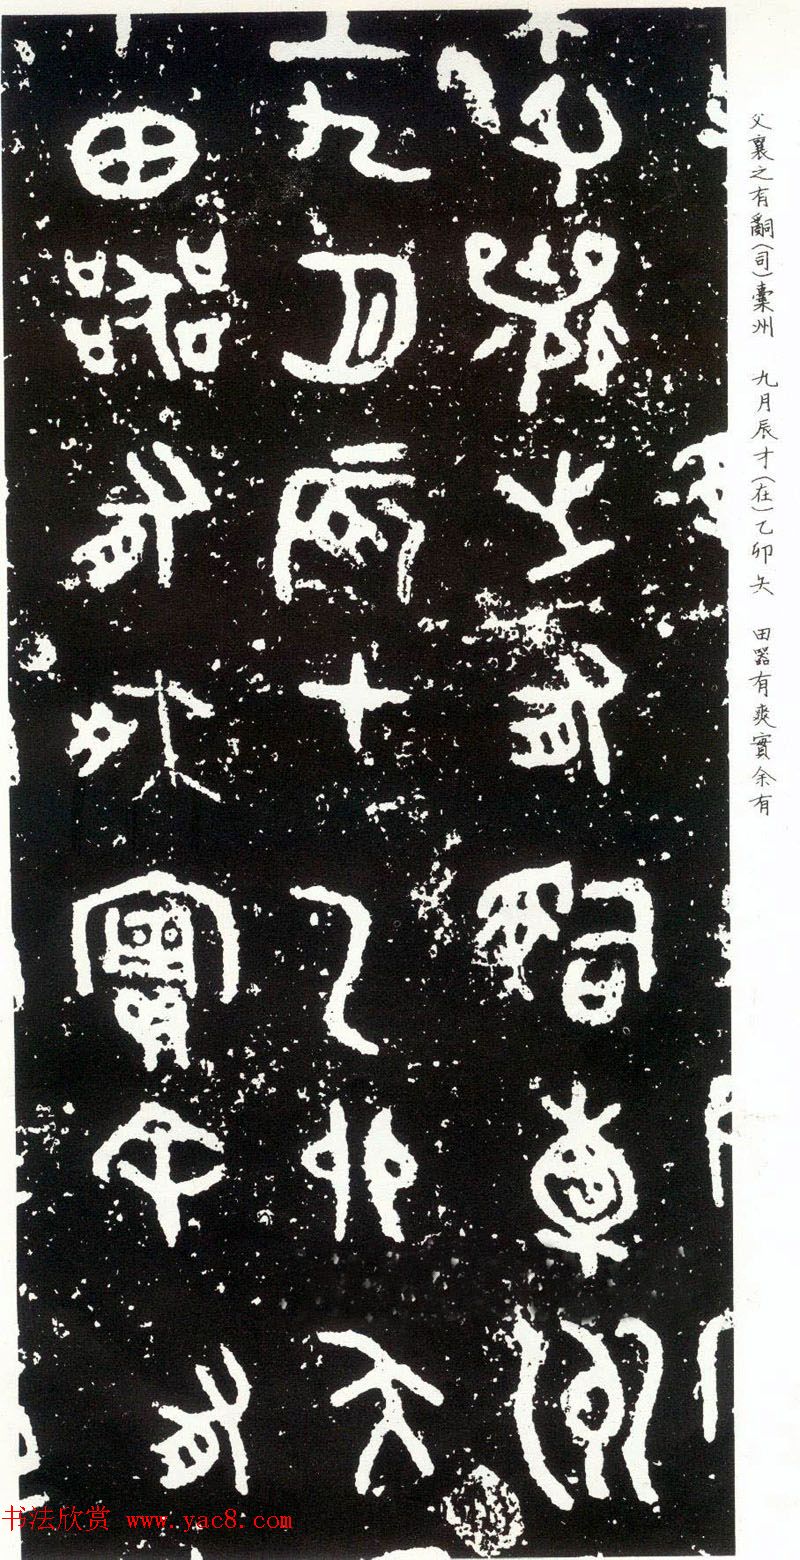 父襄之有嗣(司)橐州
九月辰才(在)乙卯矢
田器有爽實余有
书法欣赏 www.yac8.com